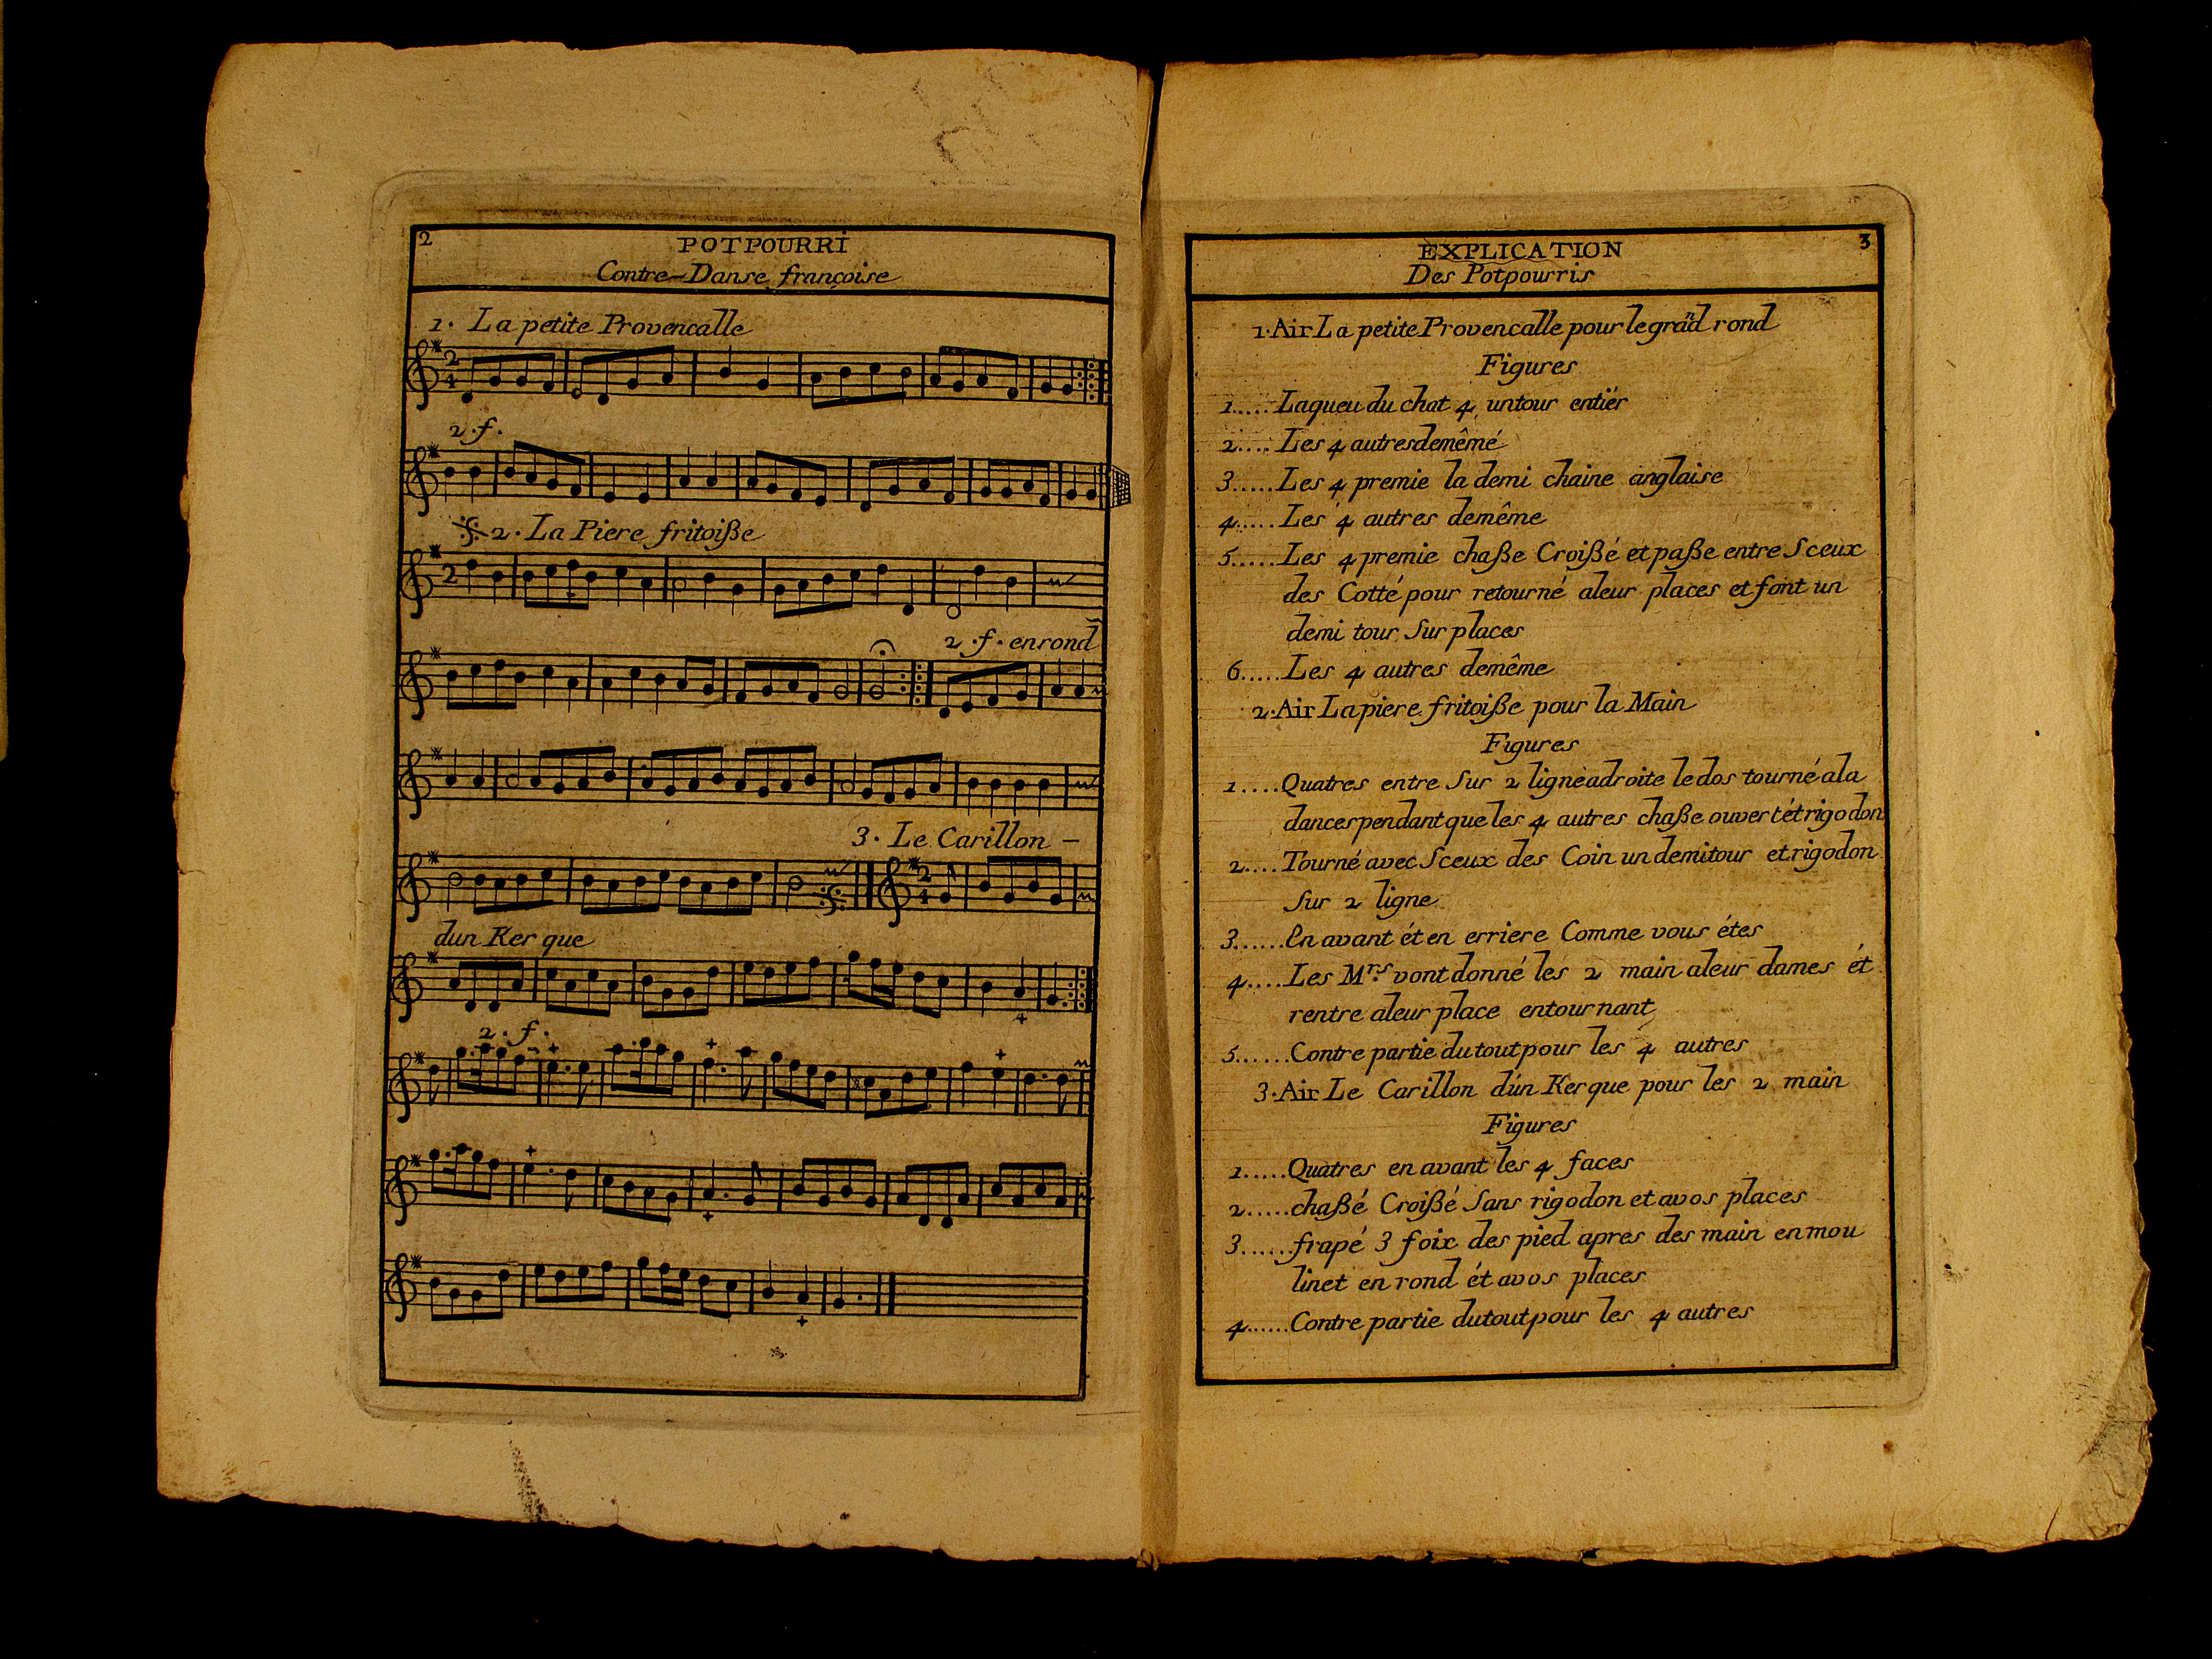 2
POTPOURRI
Contre-Danse françoise
1. La petite Provencalle
2.f.
2. La Piere fritoiße
2.f. enrond
3. Le Carillon -
dun Ker que
2. f.
EXPLICATION
3
Des Potpourris
1. Air La petite Provencalle pour le grand rond
Figures
1..... Laqueu du chat 4 untour entiér
2.... Les 4 autresdemêmé
3..... Les 4 premie la demi chaine anglaise
4..... Les 4 autres demême
5..... Les 4 premie chaße Croißé et paße entre Sceux
des Cotté pour retourné aleur places et font un
demi tour Sur places
6..... Les 4 autres demême
2. Air Lapiere fritoiße pour la Main
Figures
1.... Quatres entre Sur 2 ligneadroite ledos tourné ala
dancespendantque les 4 autres chaße ouvertétrigodon
2.... Tourné avec Sceux des Coin un demitour etrigodon
Sur 2 ligne
3...... En avant ét en erriere Comme vous étes
4.... Les Mrs. vont donné les 2 main aleur dames ét
rentre aleur place entournant
5...... Contre partie dutoutpour les 4 autres
3. Air Le Carillon dún Kerque pour les 2 main
Figures
1..... Quatres en avant les 4 faces
2..... chaßé Croißé Sans rigodon et avos places
3...... frapé 3 foix des pied apres des main en mou
linet en rond ét avos places
4...... Contre partie dutoutpour les 4 autres